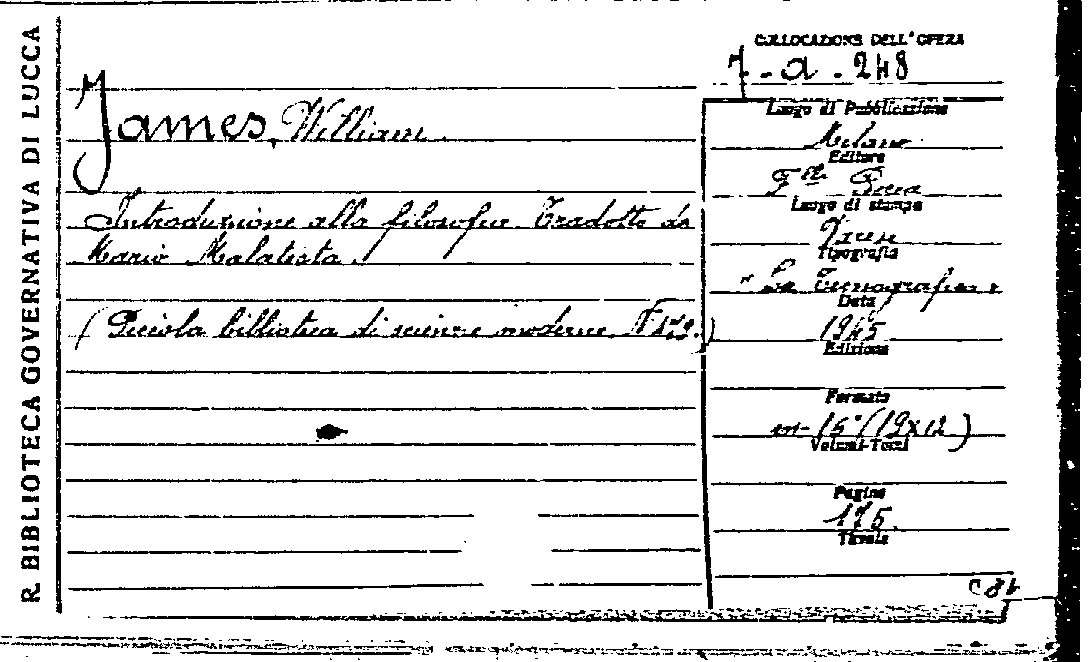 R. BIBLIOTECA GOVERNATIVA DI LUCCA
James, William.
Introduzione alla filosofia. Tradotto da
Mario Malatesta.
(Piccola biblioteca di scienze moderne.
COLLOCAZIONE DELL'OPERA
7 - a . 248
Luogo di Pubblicazione
Milano
Editore
F.lli Bocca
Luogo di stampa
Varese
Tipografia
Data
1945
Edizione
Formato
in-16° (19x12)
Volumi-Tomi
Pagine
175
Tavole